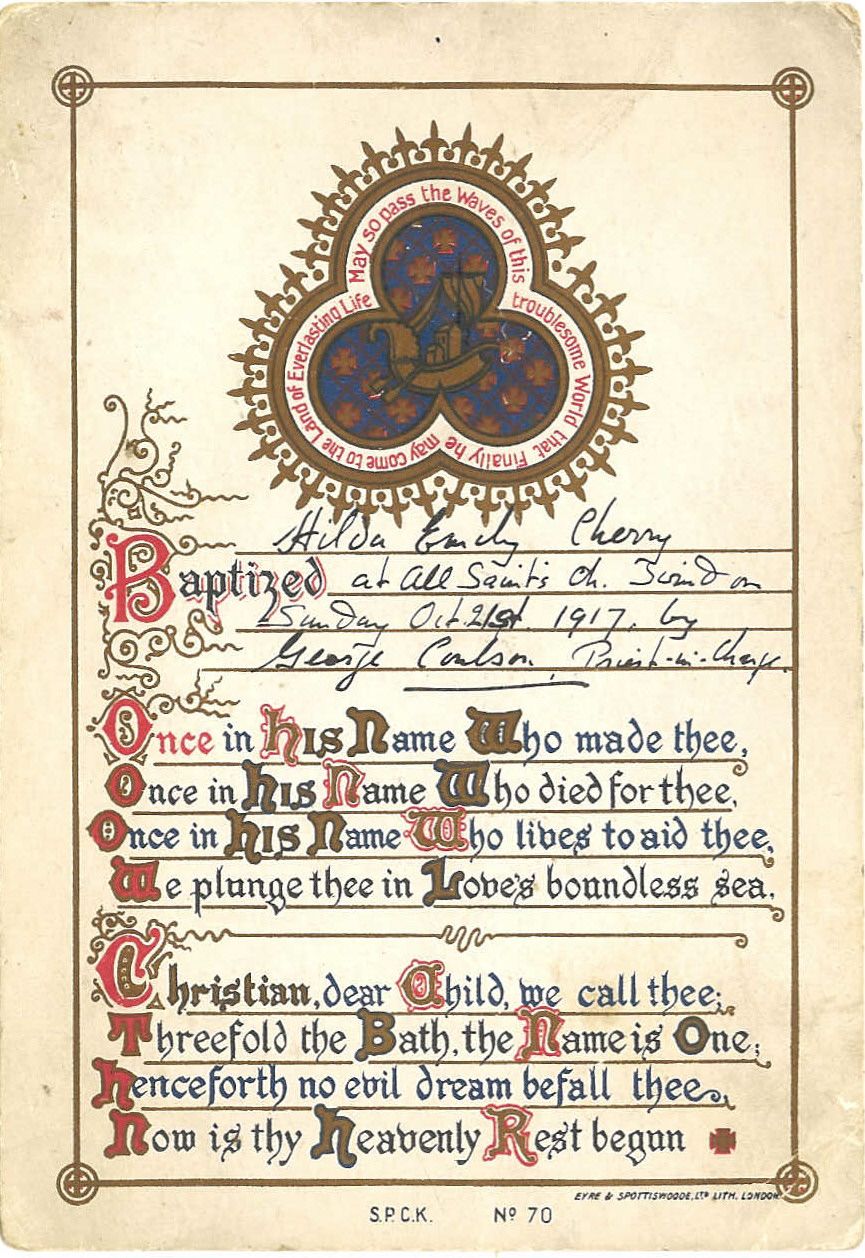 May so pass the Waves of this troublesome World that Finally he may come to the Land of Everlasting Life
Hilda Emily Cherry
Baptized at All Saint's Ch. Swindon
Sunday Oct. 21st. 1917. by
George Coulson. Priest-in-Charge.
Once in his Name Who made thee,
Once in his Name Who died for thee,
Once in his Name Who lives to aid thee,
We plunge thee in Love's boundless sea.
Christian, dear Child, we call thee;
Threefold the Bath, the Name is One;
henceforth no evil dream befall thee,
Now is thy heavenly Rest begun
EYRE & SPOTTISWOODE, LTD LITH. LONDON.
S.P.C.K. No 70